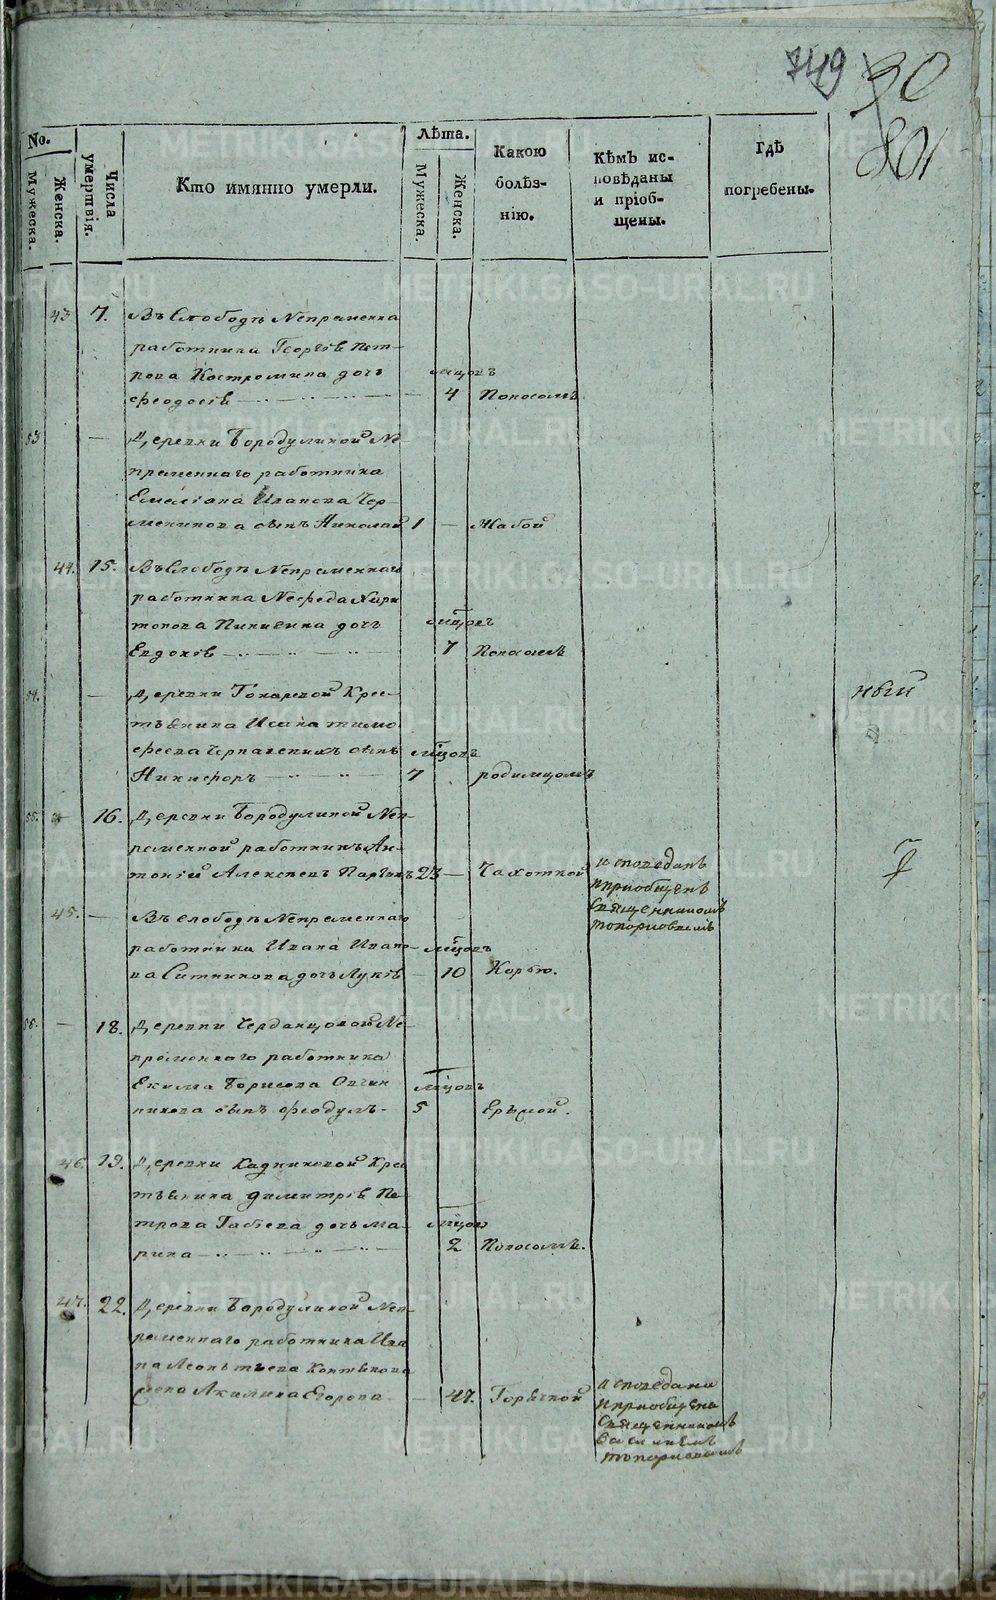 749 90
801
No.
Мужеска.
Женска.
Числа умертвія.
Кто имянно умерли.
Лѣта.
Мужеска.
Женска.
Какою
болѣз-
нію.
Кѣмъ ис-
повѣданы
и пріоб-
щены.
Гдѣ
погребены.
43 7. Въ Слободѣ Непременна
работника Георгіѧ Пет-
рова Костромина дочь мцовъ
Феодосіѧ 4 Поносомъ
53 — Деревни Бородулиной Не-
пременнаго работника
Емеліана Иванова Чер-
сынъ Николай 1 — Жабой
44. 15. Въ Слободѣ Непременнаго
работника Мефеда Хари
тонова дочь мцовъ
Евдокіѧ 7 Поносомъ
54. — Деревни Токаревой Крес-
тьѧнина Исака Тимо
феева сынъ мцовъ
Никифоръ 7 родимцомъ
ный
55. 16. Деревни Бородулиной Неп-
ременной работникъ Ан-
тоній Алексѣевъ 23 — Чахоткой
исповеданъ
и приобщенъ
Священникомъ
Топорковымъ
45. — Въ слободѣ Непременнаго
работника Ивана Ивано- мцовъ
ва Ситникова дочь Лукіѧ — 10 Корью.
56. — 18. Деревни Черданцовой Не-
пременнаго работника
Екима Борисова Овчин мцовъ
никова сынъ Феодулъ - 5 Грыжой.
46. 19. Деревни Кадниковой Крес
тьѧнина Димитріѧ Пе-
трова дочь Ма- мцов
рина 2 Поносомъ.
47. 22. Деревни Бородулиной Неп-
ременнаго работника Ива
на Леонтьева
жена Акилина Егорова — 47. Горѧчкой
исповедана
и приобщена
Священникомъ
Василиемъ
Топорковымъ
METRIKI.GASO-URAL.RU